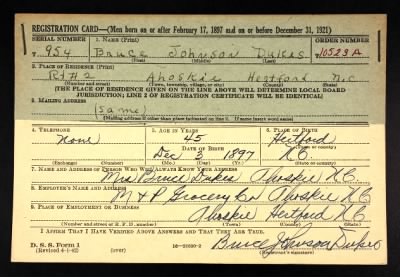 REGISTRATION CARD—(Men born on or after February 17, 1897 and on or before December 31, 1921)
SERIAL NUMBER 1. NAME (Print) ORDER NUMBER
954 Bruce Johnson Dukes 10523A
(First) (Middle) (Last)
2. PLACE OF RESIDENCE (Print)
Rt #2 Ahoskie Hertford N.C
(Number and street) (Town, township, village, or city) (County) (State)
[THE PLACE OF RESIDENCE GIVEN ON THE LINE ABOVE WILL DETERMINE LOCAL BOARD
JURISDICTION; LINE 2 OF REGISTRATION CERTIFICATE WILL BE IDENTICAL]
3. MAILING ADDRESS
(same)
[Mailing address if other than place indicated on line 2. If same insert word same]
4. TELEPHONE 5. AGE IN YEARS 6. PLACE OF BIRTH
none 45 Hertford
DATE OF BIRTH (Town or county)
Dec 3 1897 N.C.
(Exchange) (Number) (Mo.) (Day) (Yr.) (State or country)
7. NAME AND ADDRESS OF PERSON WHO WILL ALWAYS KNOW YOUR ADDRESS
Mrs Bruce Dukes Ahoskie N.C
8. EMPLOYER'S NAME AND ADDRESS
M & P Grocery Co Ahoskie N.C
9. PLACE OF EMPLOYMENT OR BUSINESS
Ahoskie Hertford N.C
(Number and street or R. F. D. number) (Town) (County) (State)
I AFFIRM THAT I HAVE VERIFIED ABOVE ANSWERS AND THAT THEY ARE TRUE.
D. S. S. Form 1
(Revised 4-1-42) (over) 16-21630-2 Bruce Johnson Dukes